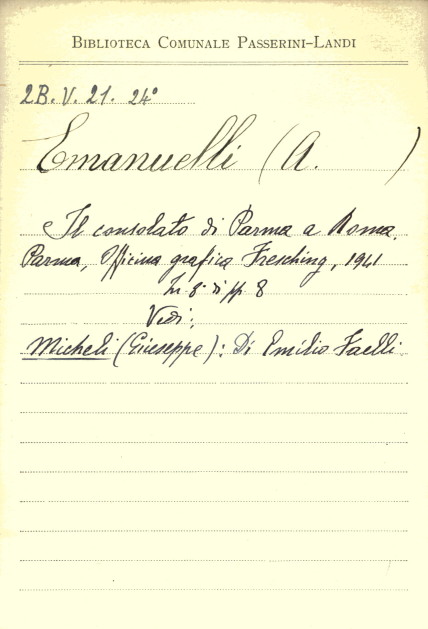 BIBLIOTECA COMUNALE PASSERINI-LANDI
2B. V. 21. 24°
Emanuelli (A. )
Il consolato di Parma a Roma.
Parma, Officina grafica Fresching, 1941
In 8° di pp. 8
Vedi:
Micheli (Giuseppe): Di Emilio Faelli.